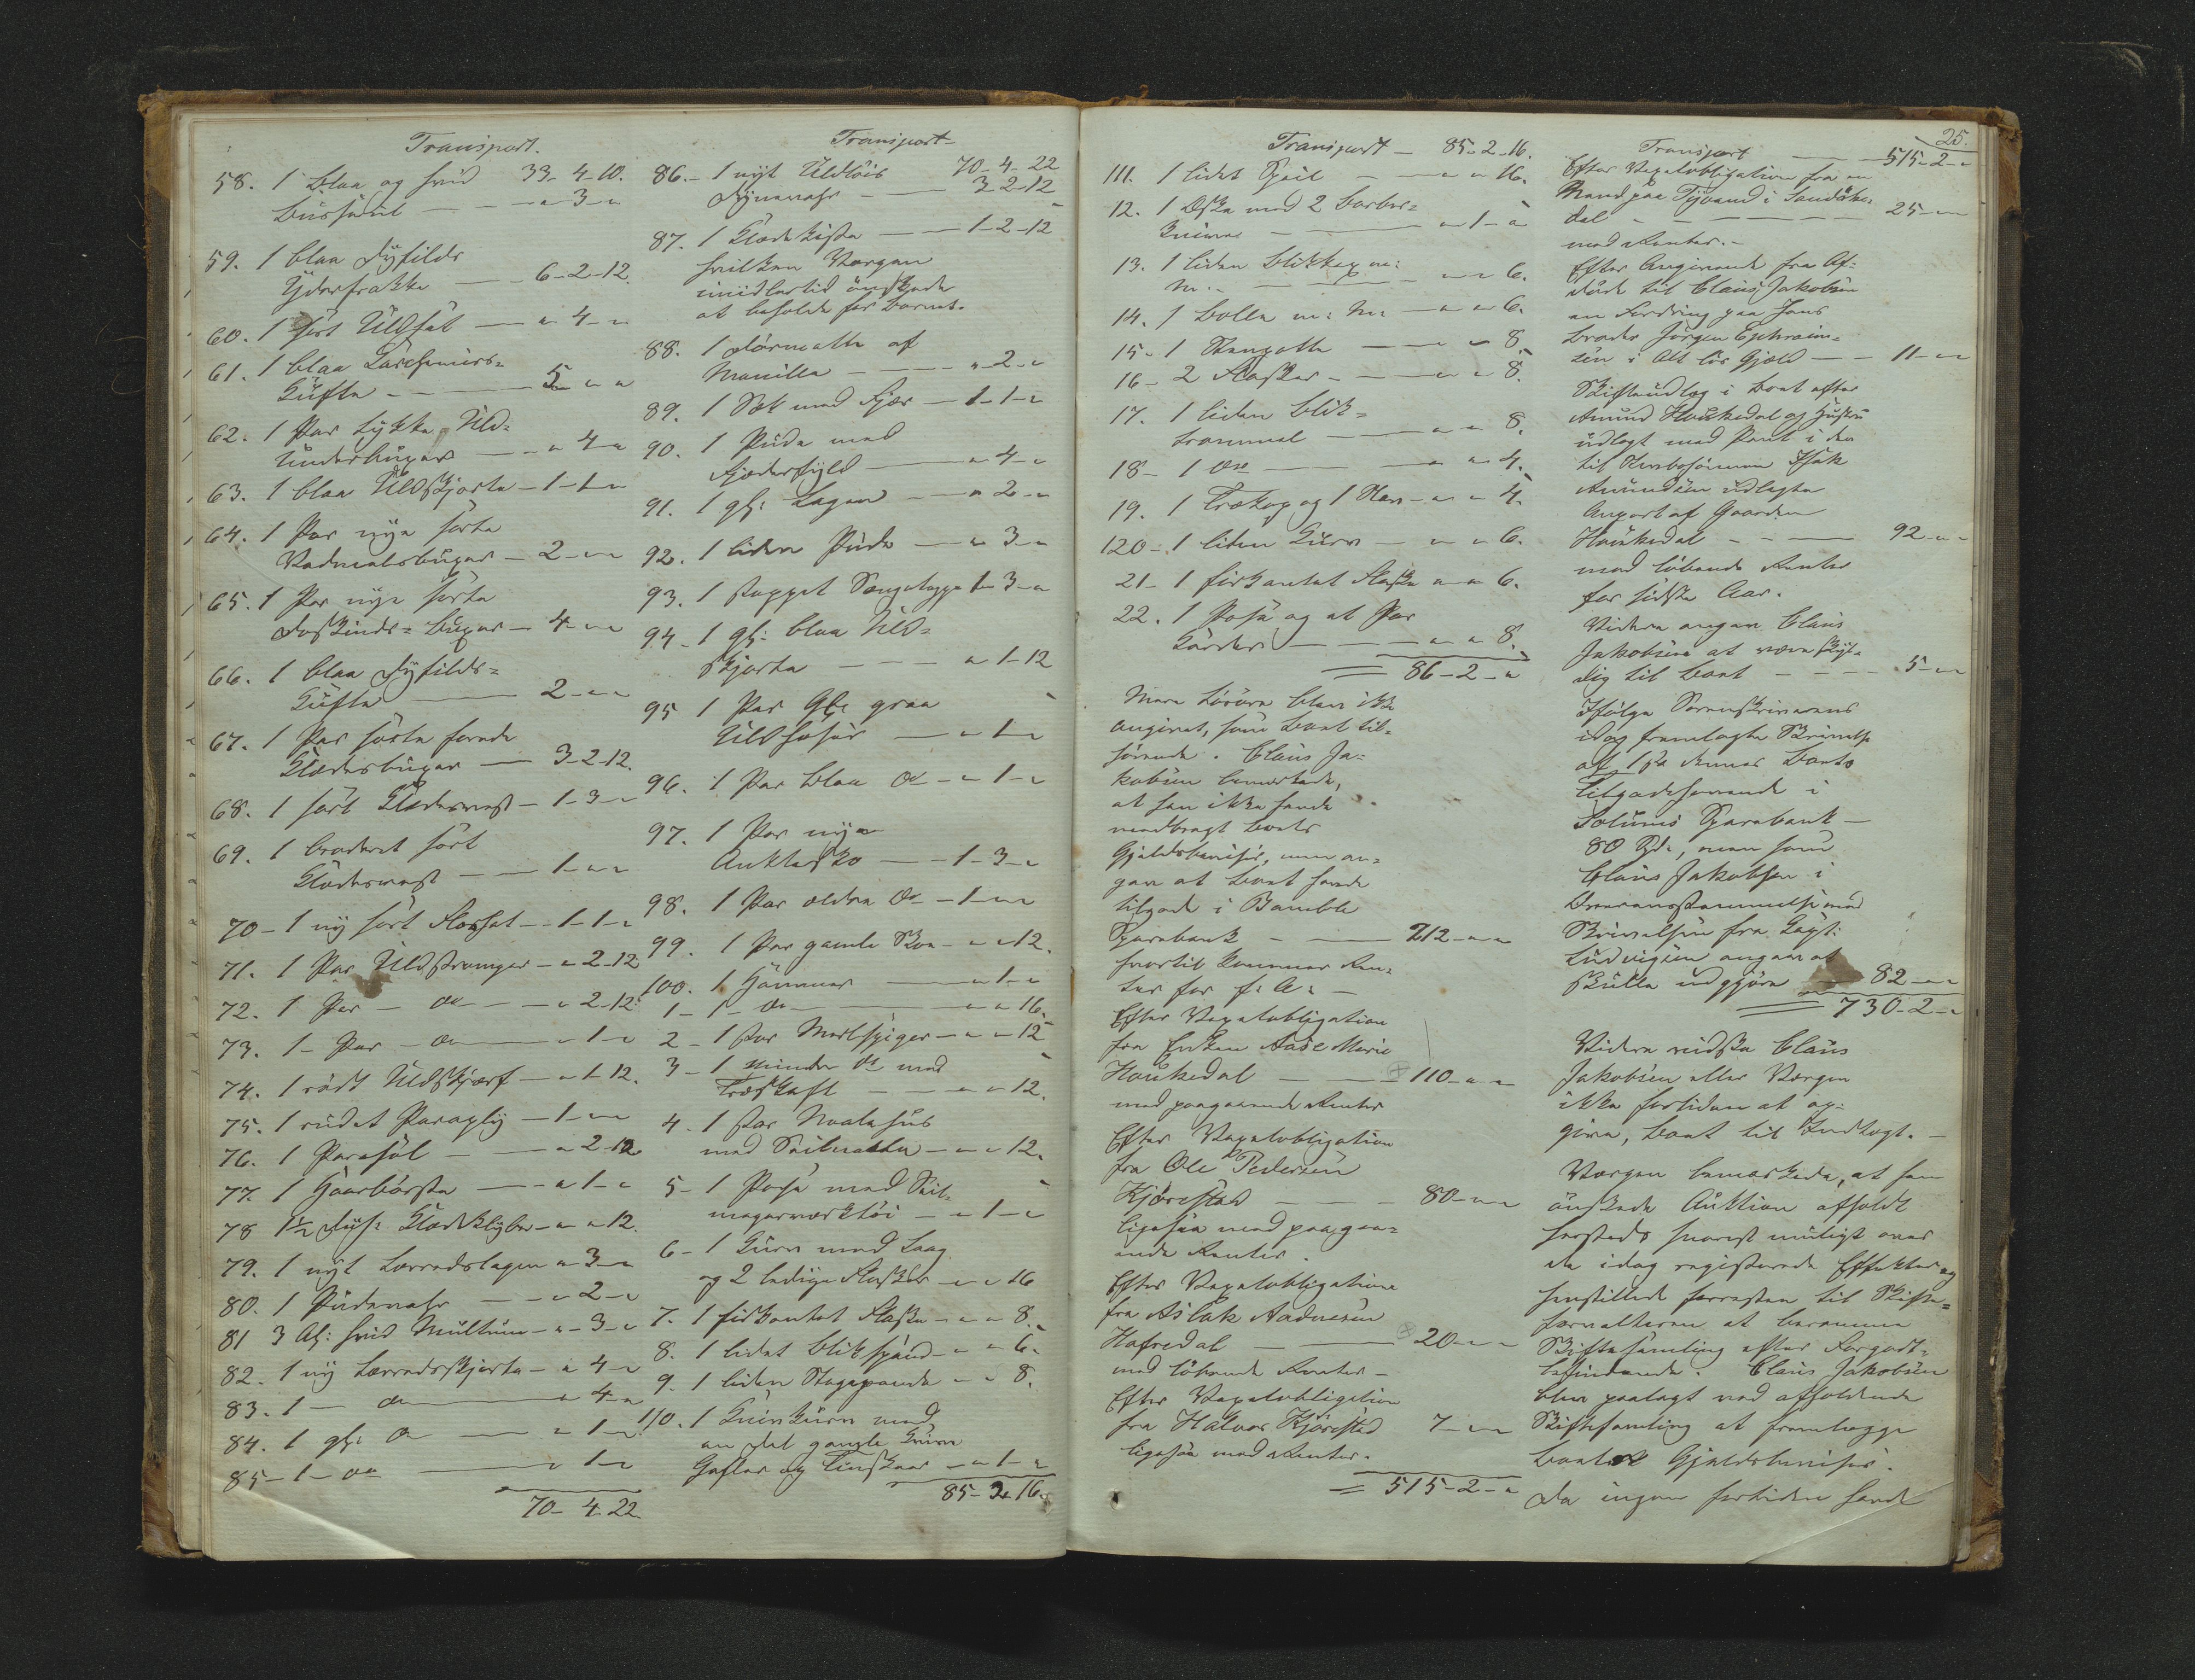 Transport.
58. 1 blaa og hvid 33-4-10.
Busserul - - „-3-„
59. 1 blaa Dyfilds
Yderfrakke - 6-2-12.
60. 1 sort Uldhat - „-4-„
61. 1 blaa Caschmirs-
Kufte - 5-„-„
62. 1 Par tykke Uld-
Underbuxer - „-4-„
63. 1 blaa Uldskjorte - 1-1-„
64. 1 Par nye sorte
Vadmelsbuxer - 2-„-„
65. 1 Par nye sorte
Doskinds-Buxer - 4-„-„
66. 1 blaa Dyfilds-
Kufte - 2-„-„
67. 1 Par sorte forede
Klædesbuxer - 3-2-12.
68. 1 sort Klædesvest - 1-3-„
69. 1 broderet sort
Klædesvest - 1-„-„
70 - 1 ny sort Floshat - 1-1-„
71. 1 Par Uldstrømper - „-2-12
72. 1 Par - do - „-2-12.
73. 1 - Par - do - „-1-„
74. 1 rødt Uldskjærf - „-1-12.
75. 1 rudet Paraply - 1-„-„
76. 1 Parasol - „-2-12
77. 1 Haarbørste - „-1-„
78 1½ Klædeklyber - „-„-12.
79. 1 nyt Lærredslagen „-3-„
80. 1 Pudevahr - „-2-„
81 3 Al: hvid Multum - „-3-„
82. 1 ny Lærredsskjorte - „-4-„
83. 1 - do - „-4-„
84. 1 gl: do - „-1-„
85 - 1 - do - „-1-„
70-4-22.
Transport
86. - 1 nyt Uldtøis 70-4-22
Dynevahr - 3-2-12
87. 1 Klædekiste - 1-2-12
hvilken Værgen
imidlertid ønskede
at beholde for Barnet.
88. 1 Dørmatte af
Manilla - „-2-„
89. 1 Sæk med Fjær - 1-1-„
90. 1 Pude med
Fjæderfyld - „-4-„
91. 1 gl: Lagen - „-2-„
92. 1 liden Pude - „-3-„
93. 1 stoppet Sengeteppe 1-3-„
94. - 1 gl: blaa Uld-
skjorte - „-1-12
95 1 Par gl: graa
Uldhoser - „-1-„
96. 1 Par blaa do - „-1-„
97. 1 Par nye
Anklesko - 1-3-„
98. 1 Par ældre do - 1-„-„
99. 1 Par gamle Skoe - „-„-12.
100. 1 Hammer - „-1-„
1 - 1 - do - „-„-16.
2 - 1 stor Merlspiger - „-„-12
3 - 1 mindre do med
Træskaft - „-„-12.
4 - 1 stor Naalehus
med Seilnaale - „-„-12.
5 - 1 Pose med Seil-
magerverktøi - „-1-„
6 - 1 Kurv med Laag
og 2 ledige Flasker - „-„-16
7. 1 firkantet Flaske - „-„-8.
8. 1 lidet Blikspand - „-„-6.
9. 1 liden Stegepande - „-„-8.
110. 1 Knivkurv med
en Del gamle Knive
Gafler og Tinskeer - „-1-„
85-2-16.
25.
Transport - 85-2-16.
111. 1 lidet Speil - „-„-16.
12. 1 Æske med 2 Barber-
knive - „-1-„
13. 1 liden Blikkop m:
m. - „-„-6.
14. 1 Bolle m: m: - „-„-6.
15. 1 Stenpotte - „-„-8.
16 - 2 Flasker - „-„-8.
17. 1 liden Blik-
trommel - „-„-8.
18 - 1 Øse - „-„-4.
19. 1 Trækop og 1 - „-„-4.
120 - 1 liden Kurv - „-„-6.
21 - 1 firkantet Flaske „-„-6.
22. 1 Pose og et Par
Karder - „-„-8.
86-2-„
Mere Løsøre blev ikke
angivet, som Boet til-
hørende. Claus Ja-
kobsen bemærkede,
at han ikke havde
medbragt Boets
Gjældsbeviser, men an-
gav at Boet havde
tilgode i Bamble
Sparebank - 212-„-„
hvortil kommer Ren-
ter for f: A: -
Efter Vexelobligation
fra Enken Aase Marie
Haukedal - 110-„-„
med paagaaende Renter
Efter Vexelobligation
fra Ole Pedersen
Kjørestad - 80-„-„
ligesaa med paagaa-
ende Renter.
Efter Vexelobligation
fra Aslak Aadnesen
Hafredal - 20-„-„
med løbende Renter -
Efter Vexelobligation
fra Halvor Kjørestad 7-„-„
ligesaa med Renter.
515-2-„
Transport - 515-2-„
Efter Vexelobligation fra en
Mand paa Tyvand i Sandøke-
dal - 25-„-„
med Renter. -
Efter Angivende fra Af-
døde til Claus Jakobsen
en Fordring paa Hans
Broder Jørgen Ephraim-
sen i Alt løs Gjæld - 11-„-„
Skifteudlæg i Boet efter
Amund Haukedal og Hustru
udlagt med Pant i den
til Isak
Amundsen udlagte
Anpart af Gaarden
Haukedal - 92-„-„
med løbende Renter
for sidste Aar.
Videre angav Claus
Jakobsen at være skyl-
dig til Boet - 5-„-„
Ifølge Sorenskriverens
idag fremlagte Skrivelse
af 1ste dennes Boets
Tilgodehavende i
Solums Sparebank -
80 Spd:, men som
Claus Jakobsen i
Overensstemmelse med
Skrivelsen fra Kapt:
Ludvigsen angav at
skulle udgjøre - 82-„-„
730-2-„
Videre vidste Claus
Jakobsen eller Værgen
ikke fortiden at op-
give, Boet til Indtægt. -
Værgen bemærkede, at han
ønskede Auktion afholdt
herteds snarest muligt over
de idag registerede Effekter og
henstillede forresten til Skifte-
forvalteren at beramme
Skiftesamling efter Forgodt-
befindende. Claus Jakobsen
blev paalagt ved afholdende
Skiftesamling at fremlægge
Boets Gjældsbeviser.
Da ingen fortiden havde